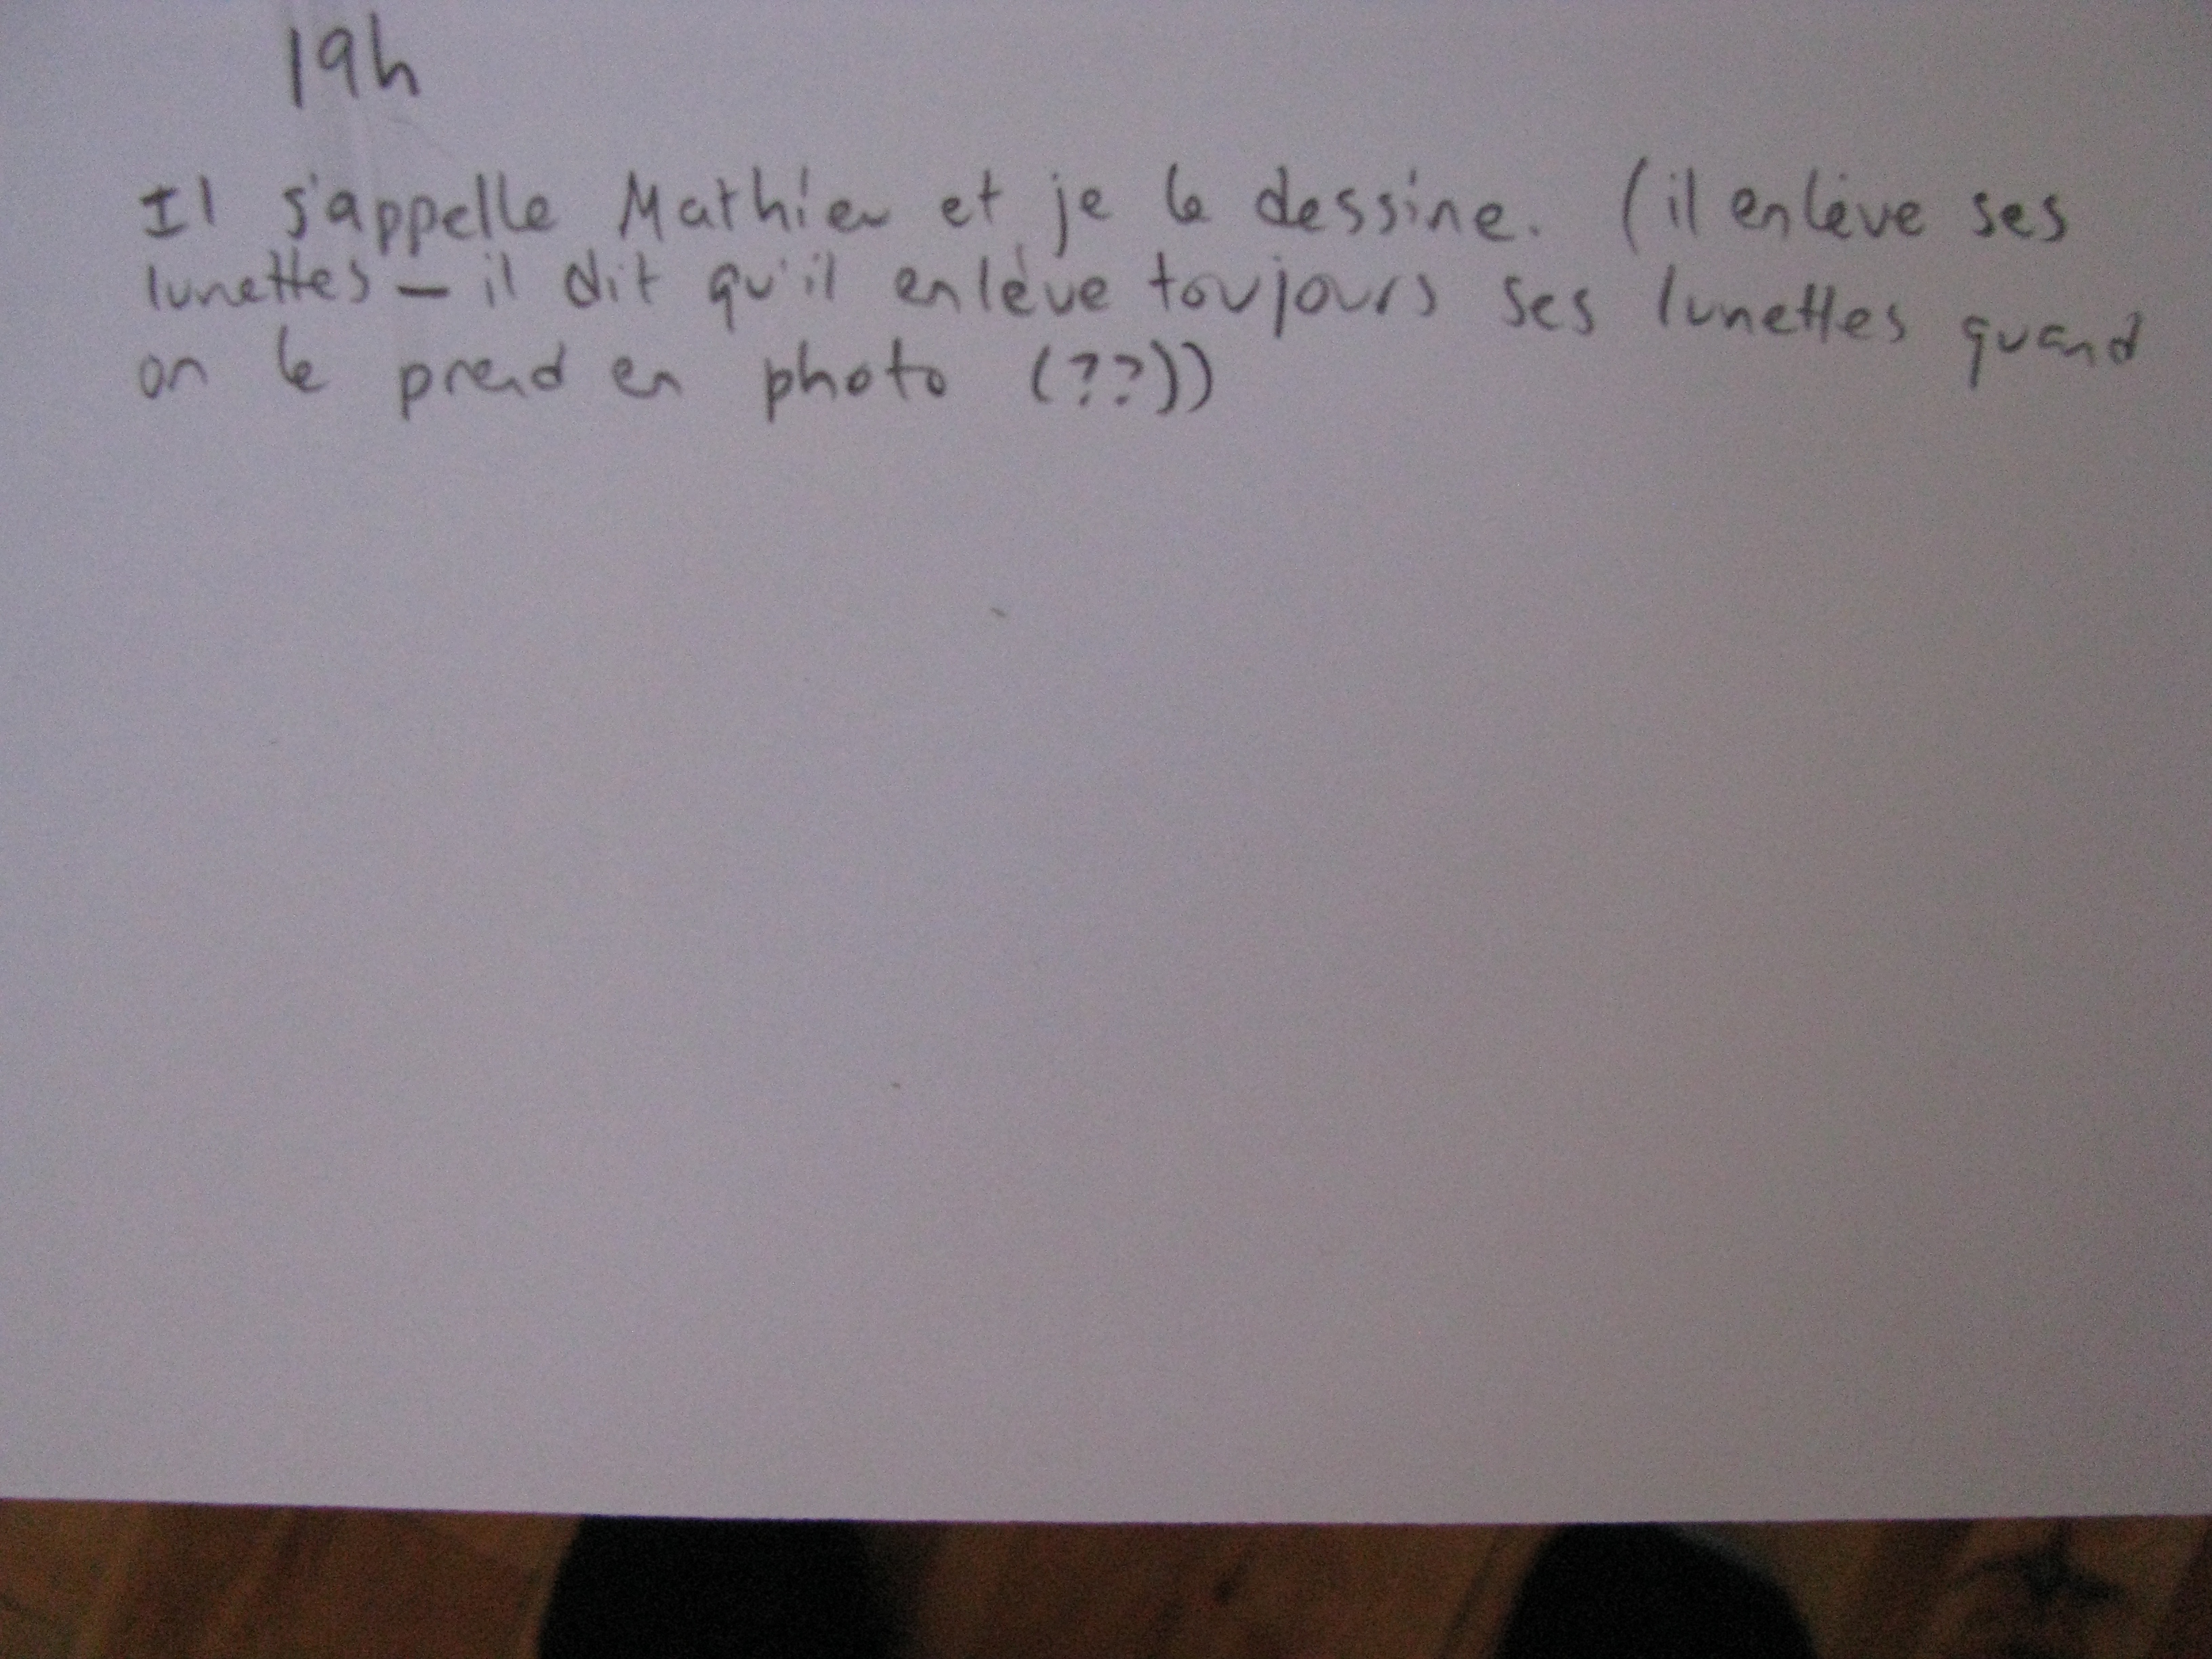 19h
Il s'appelle Mathieu et je le dessine. (il enlève ses
lunettes – il dit qu'il enlève toujours ses lunettes quand
on le prend en photo (??))